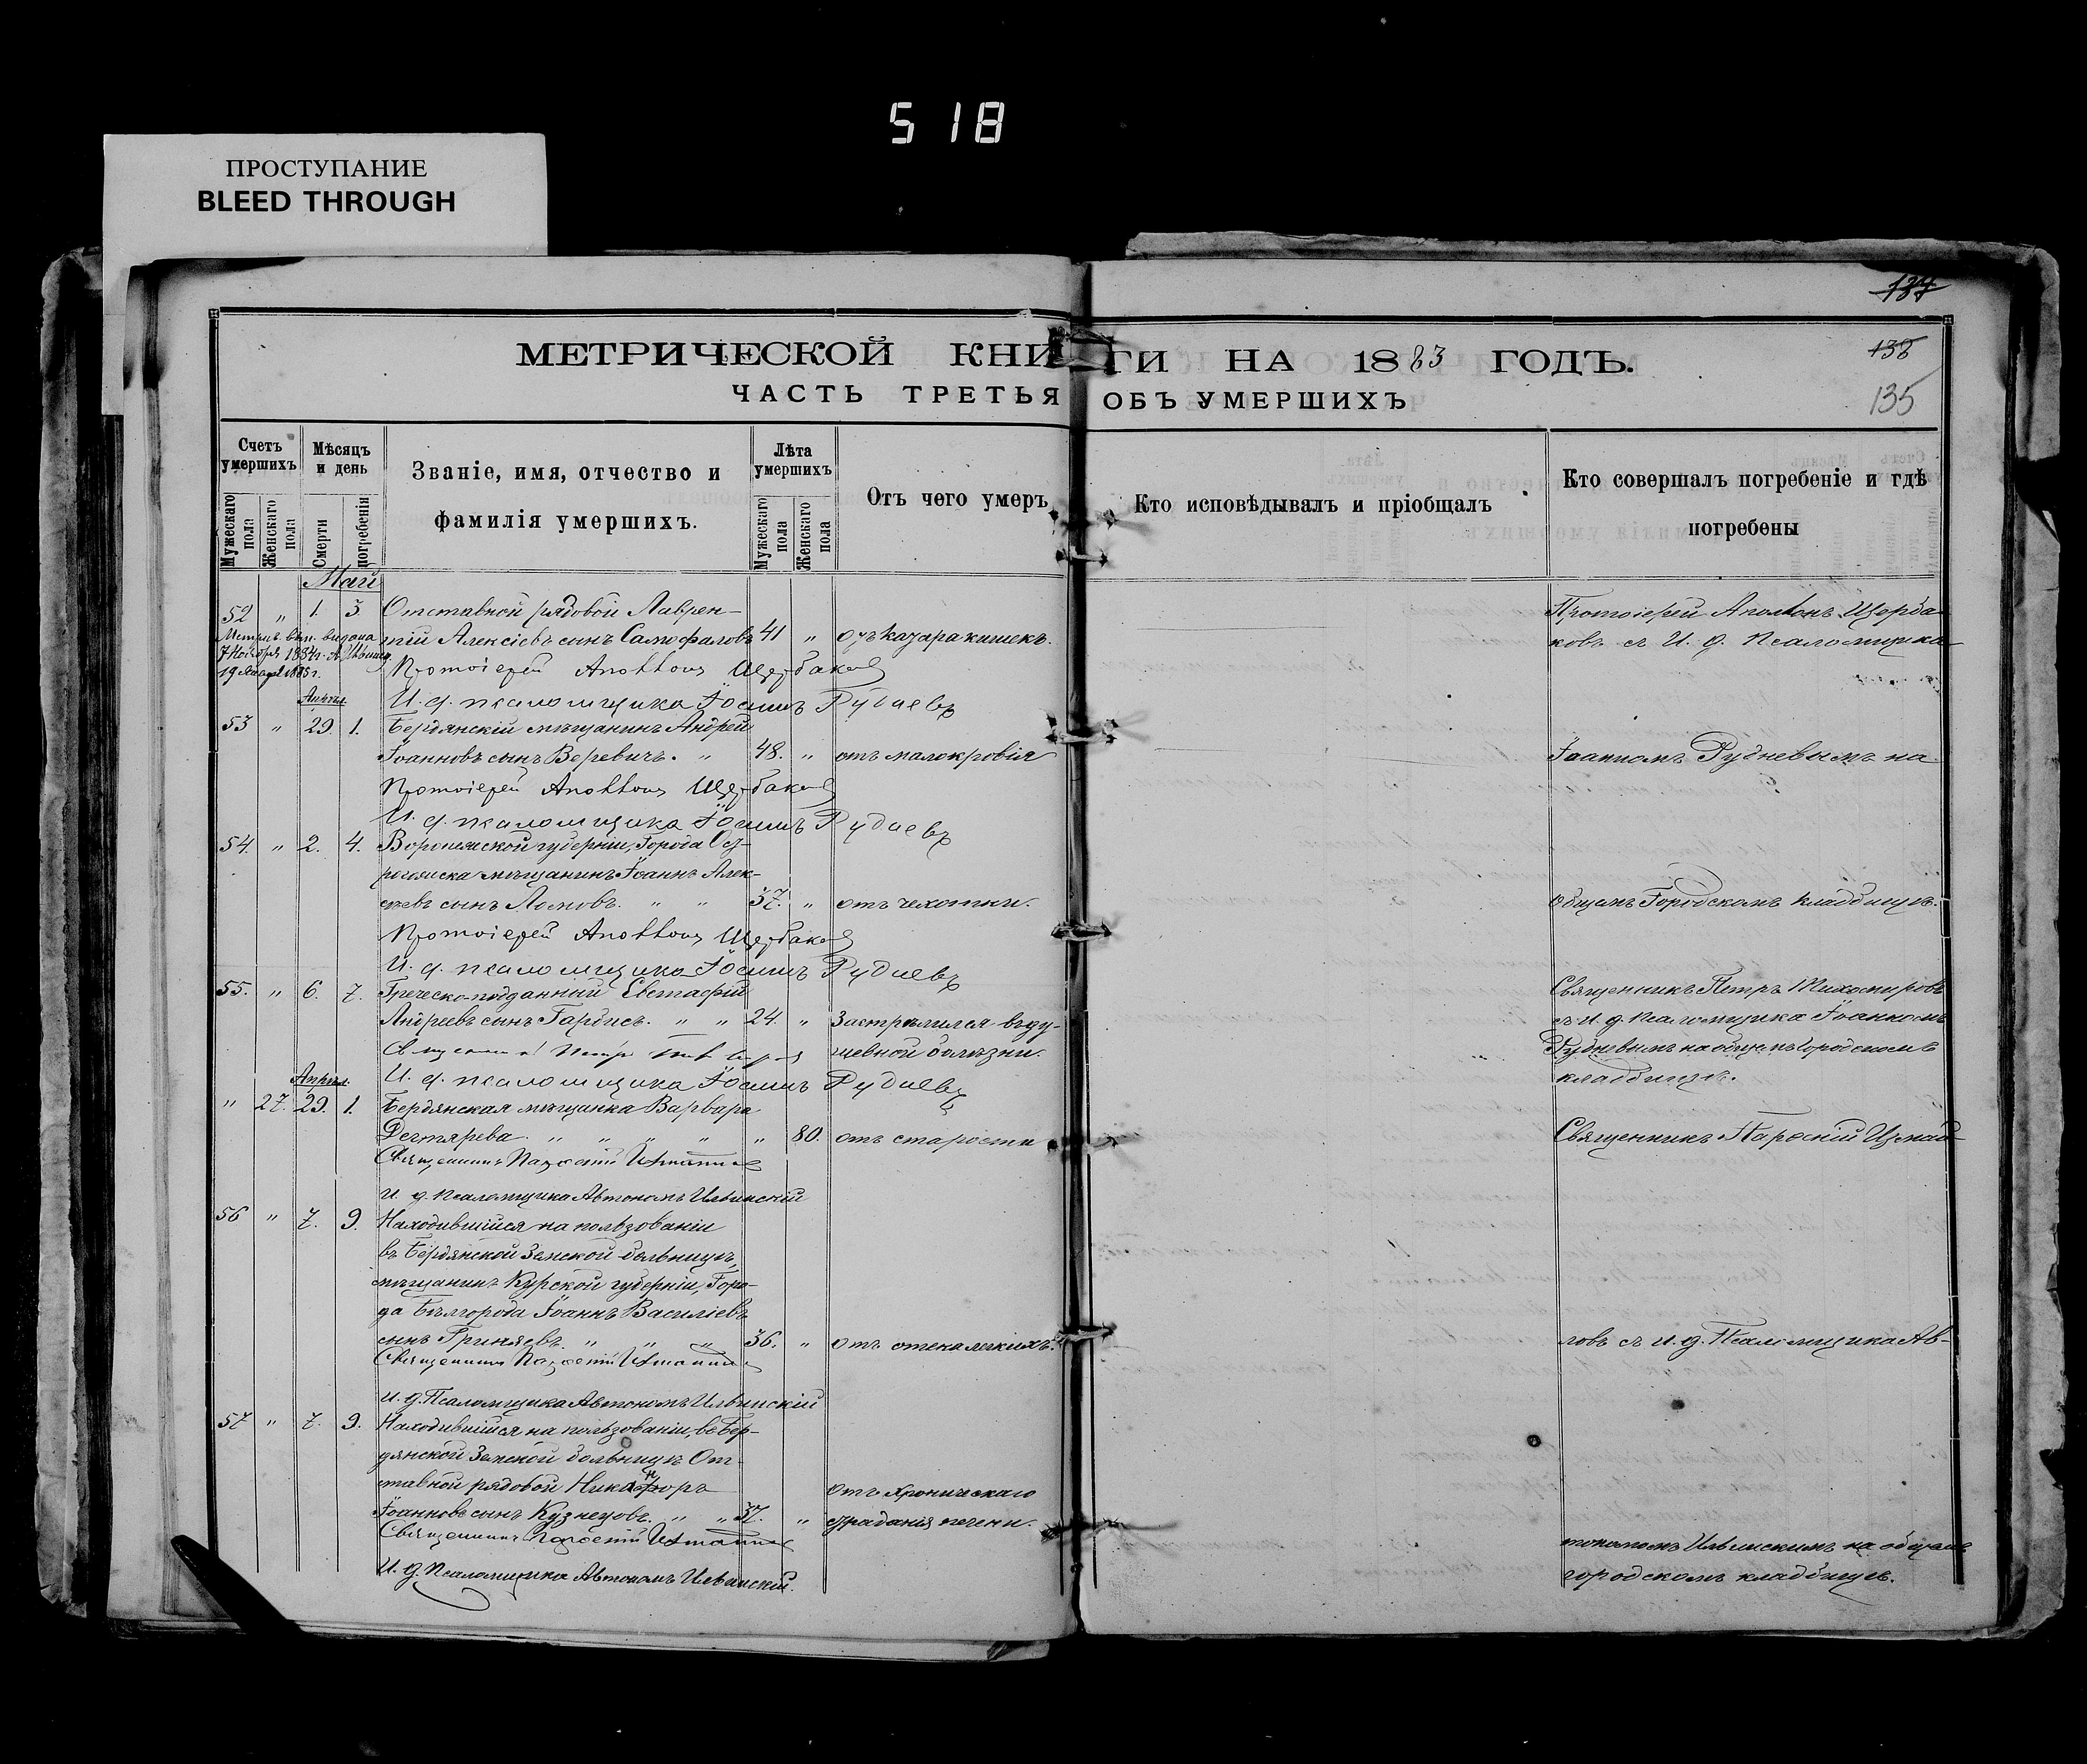 518
ПРОСТУПАНИЕ
BLEED THROUGH
137
МЕТРИЧЕСКОЙ КНИГИ НА 1883 ГОДЪ.
138
ЧАСТЬ ТРЕТЬЯ ОБЪ УМЕРШИХЪ
135
Счетъ умершихъ
Мужескаго пола
Женскаго пола
Мѣсяцъ и день
Смерти
погребенія
Званіе, имя, отчество и
фамилія умершихъ.
Лѣта умершихъ
Мужескаго пола
Женскаго пола
Отъ чего умеръ
Кто исповѣдывалъ и пріобщалъ
Кто совершалъ погребеніе и гдѣ
погребены
Май
52 " 1. 3 Отставной рядовой Лаврен-
тій Алексіевъ сынъ Самофаловъ 41 " отъ катара кишекъ.
7 Ноября 1884 г.
19 1885 г.
Протоіерей Аполлонъ Щербаковъ
И. д. псаломщика Іоаннъ Рудневъ
Апрѣля
53 " 29. 1. Бердянскій мѣщанинъ Андрей
Іоанновъ сынъ Веревичъ. " 48. " отъ малокровія
Протоіерей Аполлонъ Щербаковъ
И. д. псаломщика Іоаннъ Рудневъ
54. " 2. 4. Воронежской губерніи, Города Ост-
рогожска мѣщанинъ Іоаннъ Алек-
сѣевъ сынъ Ломовъ. " " 37. " отъ чехотки.
Протоіерей Аполлонъ Щербаковъ
И. д. псаломщика Іоаннъ Рудневъ
55. " 6. 7. Греческо-подданный Евстафій
Андреевъ сынъ Гардисъ. " " 24. " Застрѣлился въ ду-
шевной болѣзни.
Священникъ Петръ
И. д. псаломщика Іоаннъ Рудневъ
Апрѣля.
" 27. 29. 1. Бердянская мѣщанка Варвара
Дегтярева. " " " " " 80. отъ старости
Священникъ Парѳеній Измаиловъ
И. д. Псаломщика Автономъ Ильинскій
56 " 7. 9. Находившійся на пользованіи
въ Бердянской Земской больницѣ,
мѣщанинъ Курской губерніи, Горо-
да Бѣлгорода Іоаннъ Василіевъ
сынъ Гриняевъ. " " " 36. " Отъ отека легкихъ.
Священникъ Парѳеній Измаиловъ
И. д. Псаломщика Автономъ Ильинскій
57 " 7. 9. Находившійся на пользованіи, въ Бер-
дянской Земской больницѣ От-
ставной рядовой Никифоръ Отъ хроническаго
Іоанновъ сынъ Кузнецовъ. " " 37. " страданія печени.
Священникъ Парѳеній Измаиловъ
И. д. Псаломщика Автономъ Ильинскій.
Протоіерей Аполлонъ Щерба-
ковъ съ И. д. Псаломщика
Іоанномъ Рудневымъ на
общемъ Городскомъ кладбищѣ.
Священникъ Петръ Тихомировъ
съ И. д. Псаломщика Іоанномъ
Рудневымъ на общемъ Городскомъ
кладбищѣ.
Священникъ Парѳеній Измаи-
ловъ съ и. д. Псаломщика Ав-
тономомъ Ильинскимъ на общемъ
городскомъ кладбищѣ.